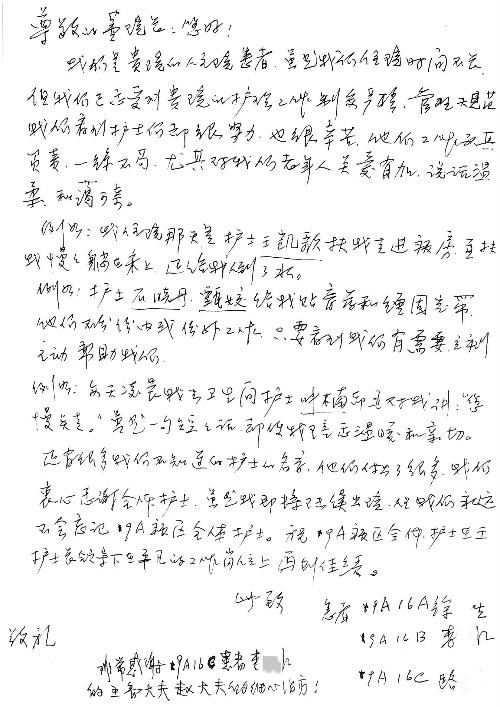 尊敬的董院长：您好！
我们是贵院的住院患者，虽然我们住院时间不长，
但我们已感受到贵院的护理工作制度严格，管理规范
我们看到护士们都很努力，也很辛苦，他们工作认真
负责，一丝不苟，尤其对我们老年人关爱有加，说话温
柔和蔼可亲。
例如：我住院那天是护士王凯歌扶我走进病房，并扶
我慢慢躺在床上，还给我倒了水。
例如：护士石晓丹，甄姣给我贴膏药和缠固定带，
他们不分份内或份外工作，只要看到我们有需要，立刻
主动帮助我们。
例如：每天凌晨我去卫生间护士叶楠却还对我讲："您
慢点走。"虽然一句短短之话，却使我倍感温暖和亲切。
还有很多我们不知道的护士的名字，他们付出了很多，我们
衷心感谢全体护士，虽然我即将陆续出院，但我们永远
不会忘记*9A病区全体护士。祝*9A病区全体护士在
护士长领导下在平凡的工作岗位上再创佳绩。
此致
敬礼
患者 *9A 16A 徐 生
*9A 16B 李 江
*9A 16C 路
非常感谢*9A16C患者李 江
的主管大夫赵大夫的细心治疗！